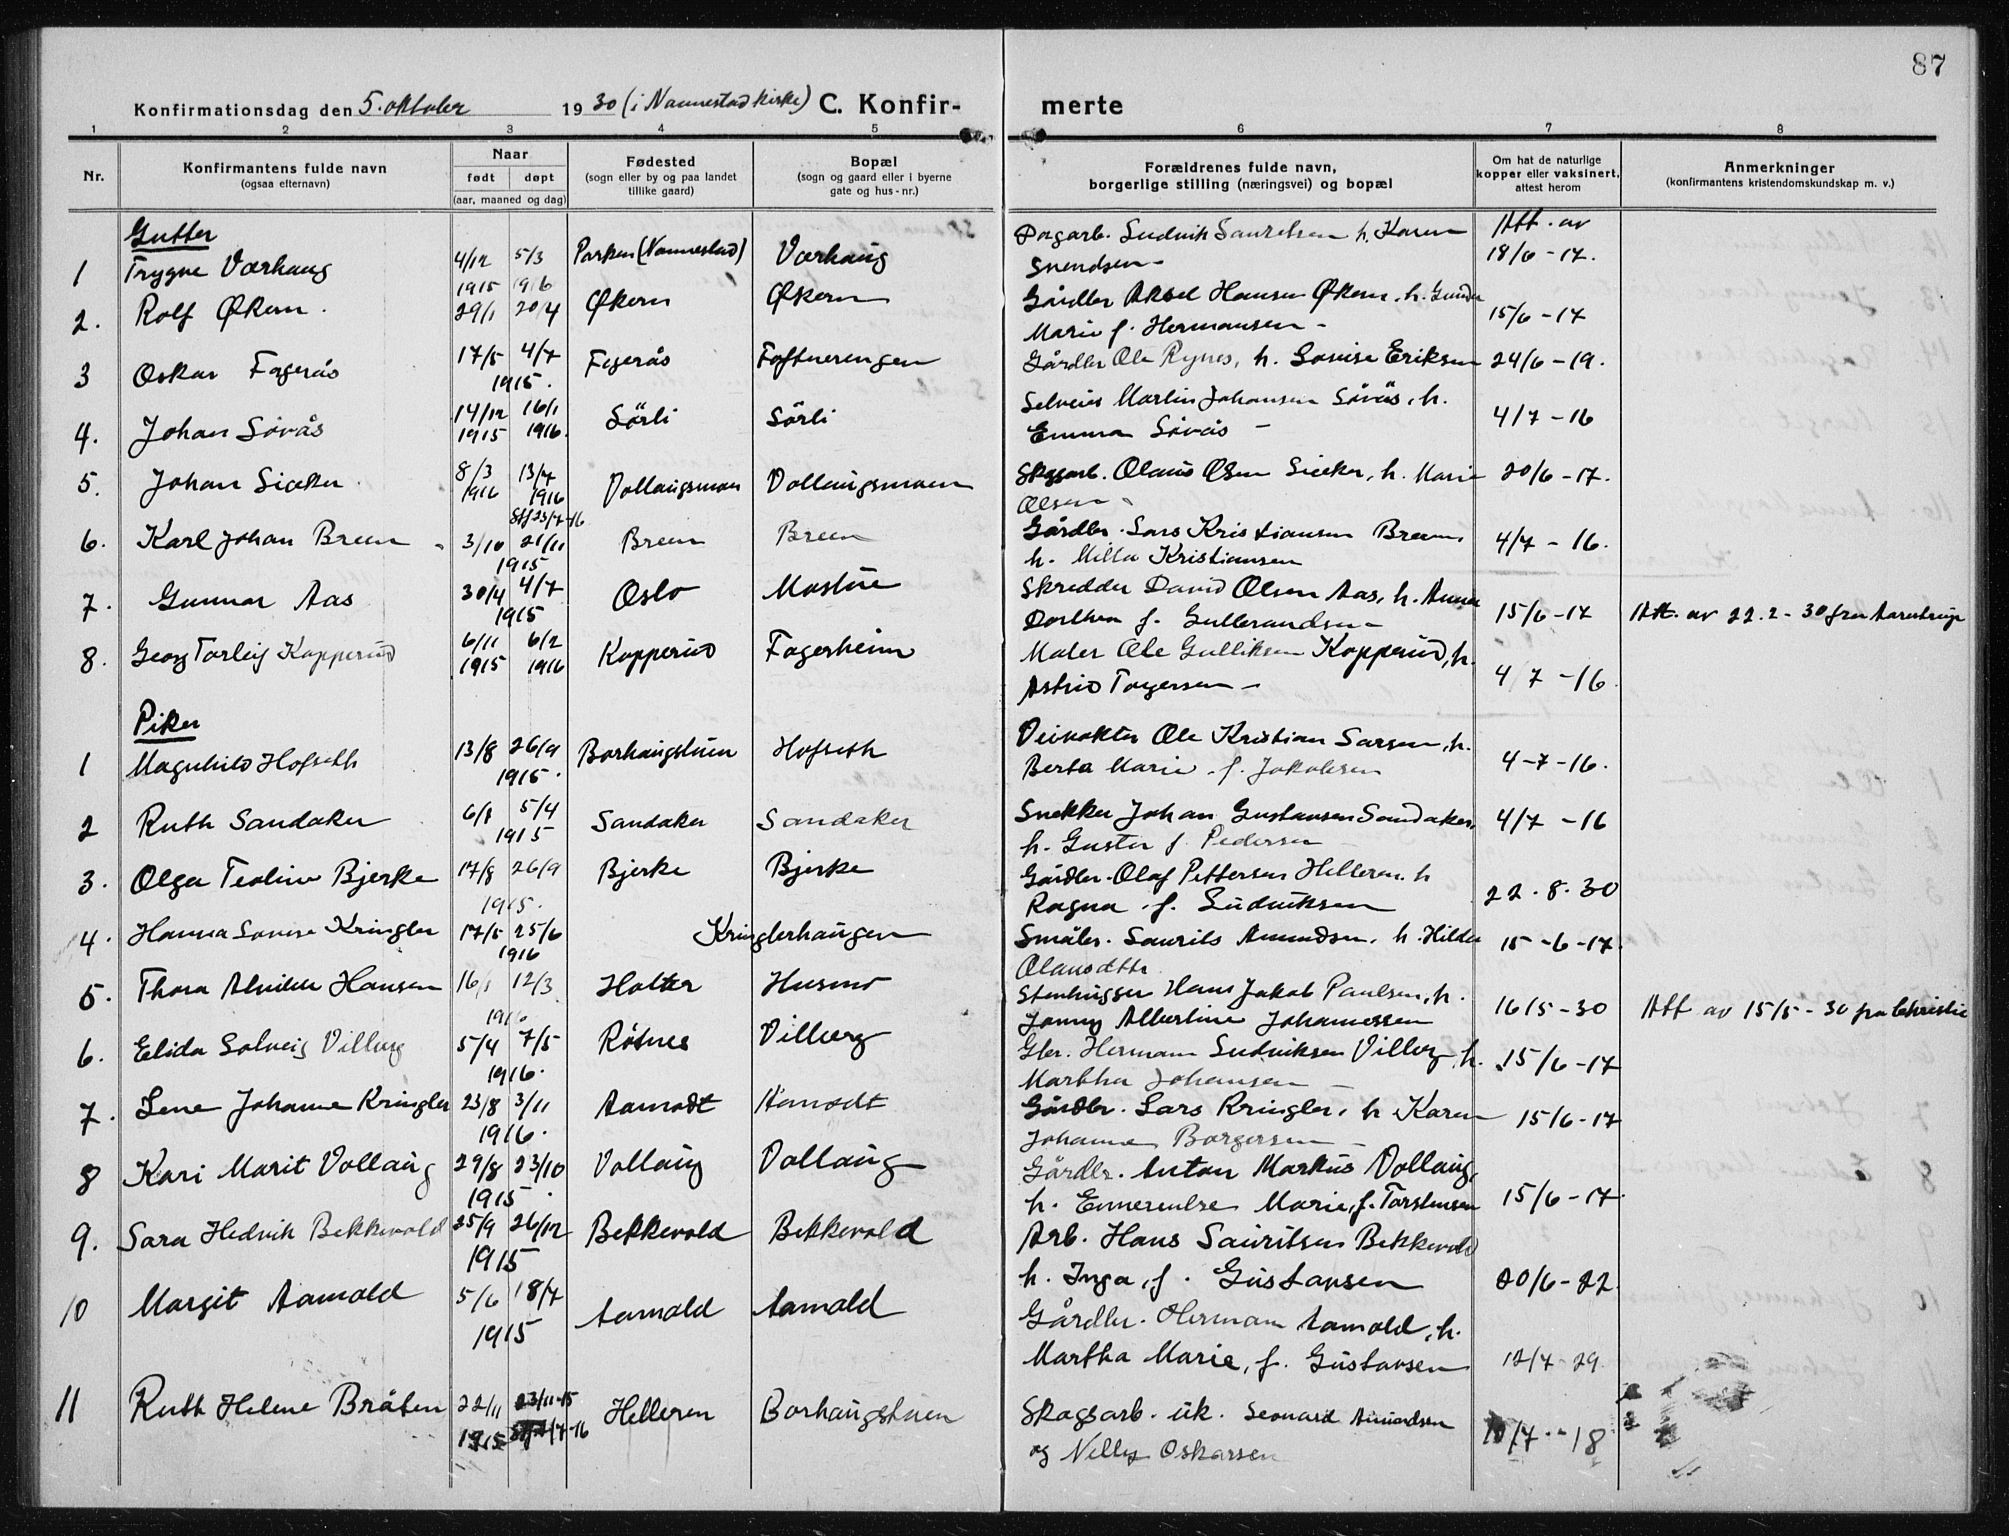 87
Konfirmationsdag den 5. oktober 1930 (i Nannestad kirke) C. Konfir-merte
1 2 3 4 5 6 7 8
Nr.
Konfirmantens fulde navn (ogsaa efternavn)
Naar født døpt (aar, maaned og dag)
Fødested (sogn eller by og paa landet tillike gaard)
Bopæl (sogn og gaard eller i byerne gate og hus-nr.)
Forældrenes fulde navn, borgerlige stilling (næringsvei) og bopæl
Om hat de naturlige kopper eller vaksinert, attest herom
Anmerkninger (konfirmantens kristendomskundskap m. v.)
Gutter
1 Trygve Værhaug 4/12 1915 5/3 1916 Parken (Nannestad) Værhaug Dagarb. Ludvik Lauritsen h. Karen Att. av
Svendsen - 18/6-17.
2. Rolf Økern. 29/1 20/4 Økern Økern Gårdbr Aksel Hansen Økern, h. Gunda
Marie f. Hermansen - 15/6-17
3 Oskar Fagerås 17/5 4/7 1915. Fagerås Toftnerengen Gårdbr Ole Rynes, h. Lovise Eriksen 24/6-19.
4. Johan Sövås 14/12 1915 16/1 1916. Sörli Sörli Selveier Martin Johansen Sövås, h.
Emma Sövås - 4/7-16
5. Johan Siæker 8/3 1916 13/7 1916 Vollaugsmoen Vollaugsmoen Skogsarb. Olaus Olsen Siæker, h. Marie 20/6-17.
Olsen
6. Karl Johan Breen 3/10 21/11 1915 Stf 23/7-16 Breen Breen Gårdbr. Lars Kristiansen Breen,
h. Milla Kristiansen 4/7-16.
7. Gunnar Aas 30/4 4/7 1915 Oslo Mostue Skredder David Olsen Aas, h. Anna
Dorthea f. Gulbrandsen - 15/6-17 Att. av 22.2-30 fra
8. Georg Torleif Kopperud 6/11 1915 6/2 1916 Kopperud Fagerheim Maler Ole Gulliksen Kopperud, h.
Astrid Torgersen - 4/7-16
Piker
1 Magnhild Hofseth 13/8 26/9 1915. Borhaugstuen Hofseth Veivokter Ole Kristian Larsen, h.
Berta Marie f. Jakobsen 4-7-16.
2 Ruth Sandaker 6/1 5/4 1915 Sandaker Sandaker Snekker Johan Gustavsen Sandaker,
h. Gusta f. Pedersen 4/7-16
3. Olga Teoline Bjerke 17/8 26/9 1915. Bjerke Bjerke Gårdbr. Olaf Pettersen Helleren. h
Ragna f. Ludviksen 22.8.30
4. Hanna Lovise Kringler 17/5 25/6 1916 Kringlerhaugen Småbr. Laurits Amundsen. h. Hilda
Olausdttr. 15-6-17
5. Thora Alvilde Hansen 16/1 12/3 Holter Husmo Stenhugger Hans Jakob Paulsen, h.
Jonny Albertine Johannessen 16/5-30 Att av 15/5-30 fra Christie
6. Elida Solveig Villberg 5/4 7/5 1916. Rötnes Villberg Gbr. Herman Ludviksen Villberg, h.
Martha Johansen - 15/6-17
7. Lene Johanne Kringler 23/8 3/11 1916. Aamodt Aamodt Gårdbr. Lars Kringler, h Karen
Johanne Borgersen - 15/6-17
8 Kari Marit Vollaug 29/8 23/10 1915. Vollaug Vollaug Gårdbr. Anton Markus Vollaug,
h. Emerentse Marie, f. Torstensen 15/6-17.
9. Sara Hedvik Bekkevold 25/9 26/12 1915 Bekkevold Bekkevold Arb. Hans Lauritsen Bekkevold
h. Inga, f. Gustavsen 20/6-22.
10 Margit Aamold 5/6 18/7 1915 Aamold Aamold Gårdbr. Herman Aamold, h.
Martha Marie, f. Gustavsen 12/7-29.
11 Ruth Helene Bråten 22/11 1915 23/11-15 Helleren Borhaugstuen Skogsarb. uk. Leonard Amundsen
og Nelly Oskarsen 10/7-18